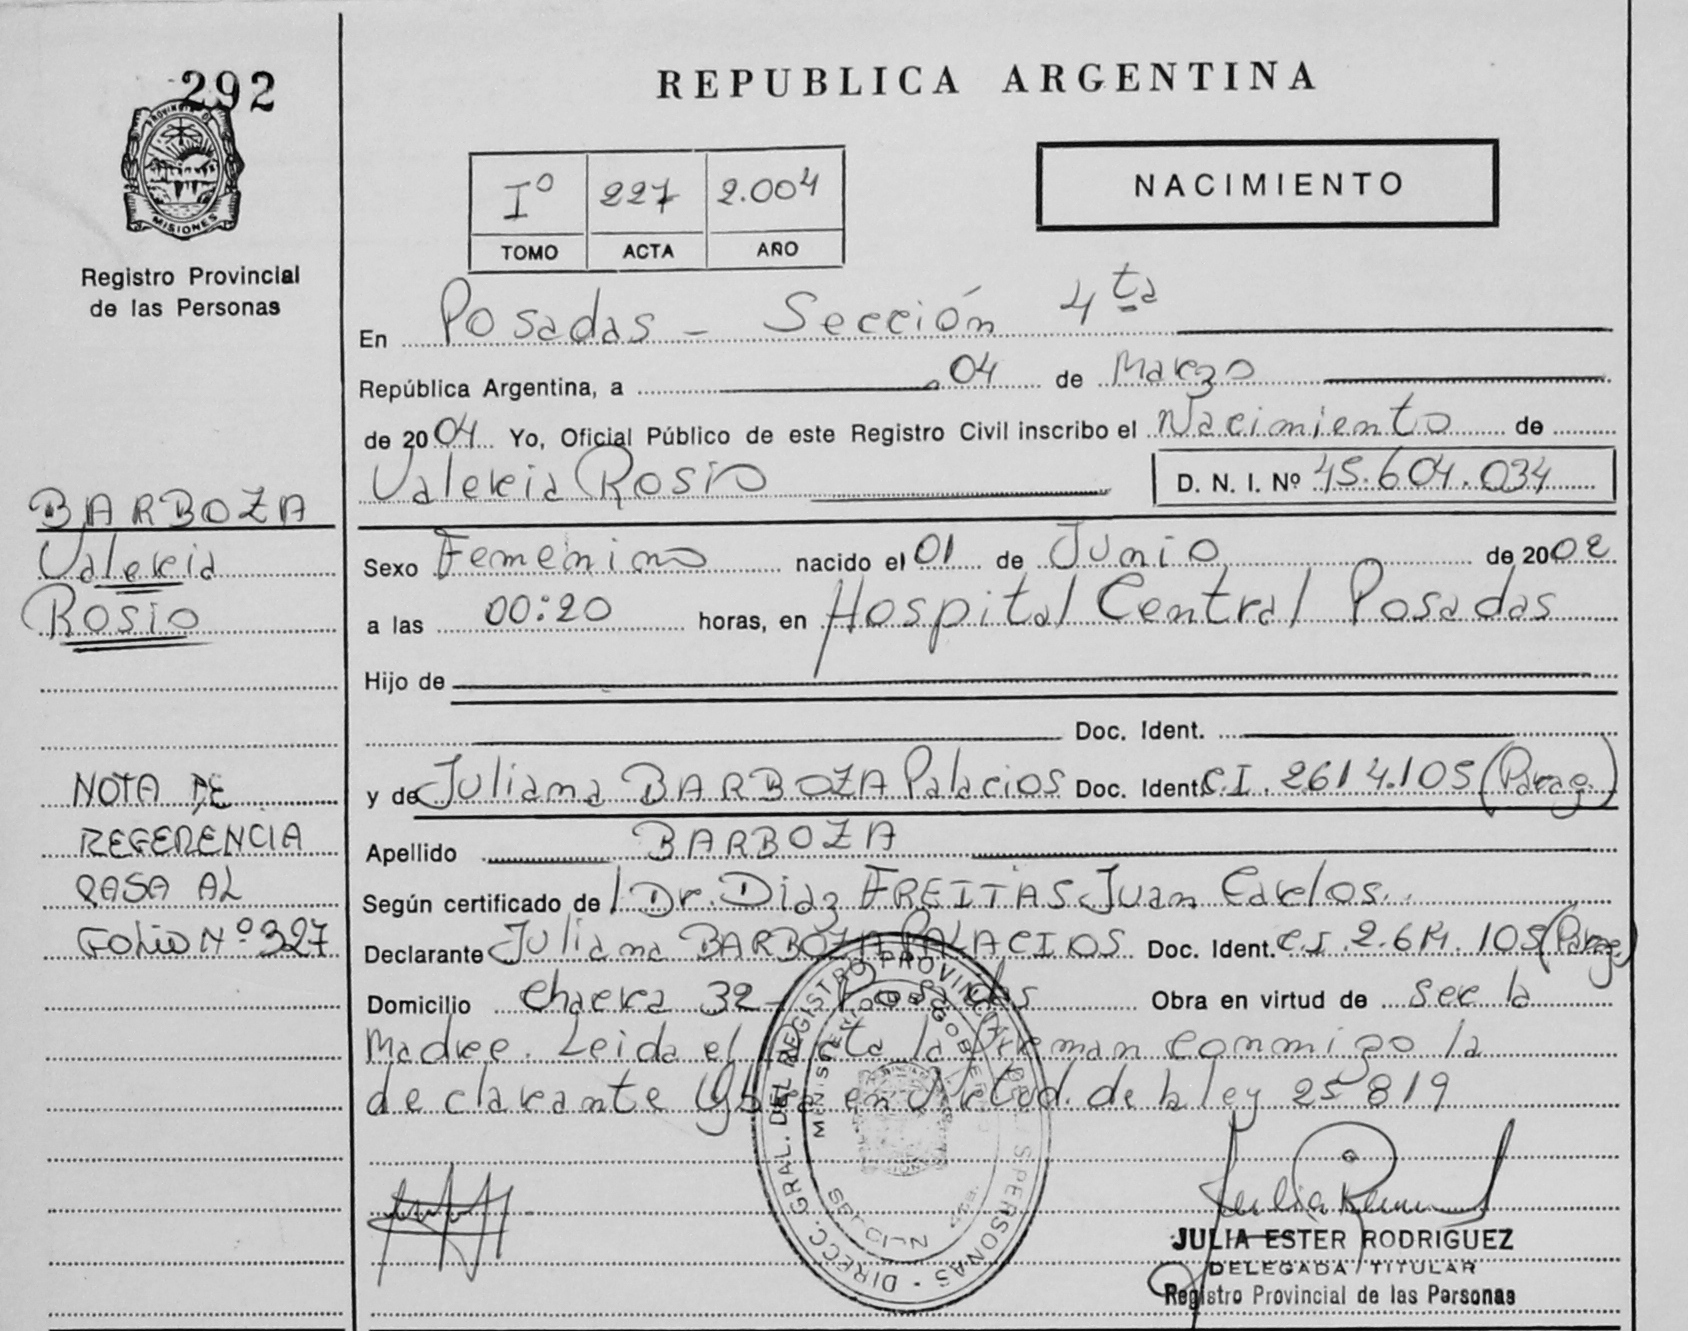 292
PROVINCIA D
MISIONES
Registro Provincial
de las Personas
REPUBLICA ARGENTINA
Iº 227 2.004
TOMO ACTA AÑO
NACIMIENTO
En Posadas - Sección 4ta
República Argentina, a 04 de Marzo
de 2004 Yo, Oficial Público de este Registro Civil inscribo el Nacimiento de
Valeria Rosio D. N. I. Nº 45.604.034
BARBOZA
Valeria
Rosio
Sexo Femenino nacido el 01 de Junio de 2002
a las 00:20 horas, en Hospital Central Posadas
Hijo de
Doc. Ident.
y de Juliana BARBOZA Palacios Doc. Ident. C.I. 2614.105 (Parag.)
NOTA DE
REFERENCIA
PASA AL
FOLIO Nº 327
Apellido BARBOZA
Según certificado de Dr. Diaz FREITAS Juan Carlos.
Declarante Juliana BARBOZA PALACIOS Doc. Ident. C.I. 2.614.105 (Parag.)
Domicilio Chacra 32 - Posadas Obra en virtud de ser la
Madre. Leida el Acta la firman conmigo la
declarante Obra en Virtud. de la ley 25 819
DIRECC. GRAL. DEL REGISTRO PROVINCIAL DE LAS PERSONAS
MINISTERIO DE GOBIERNO
JULIA ESTER RODRIGUEZ
DELEGADA TITULAR
Registro Provincial de las Personas